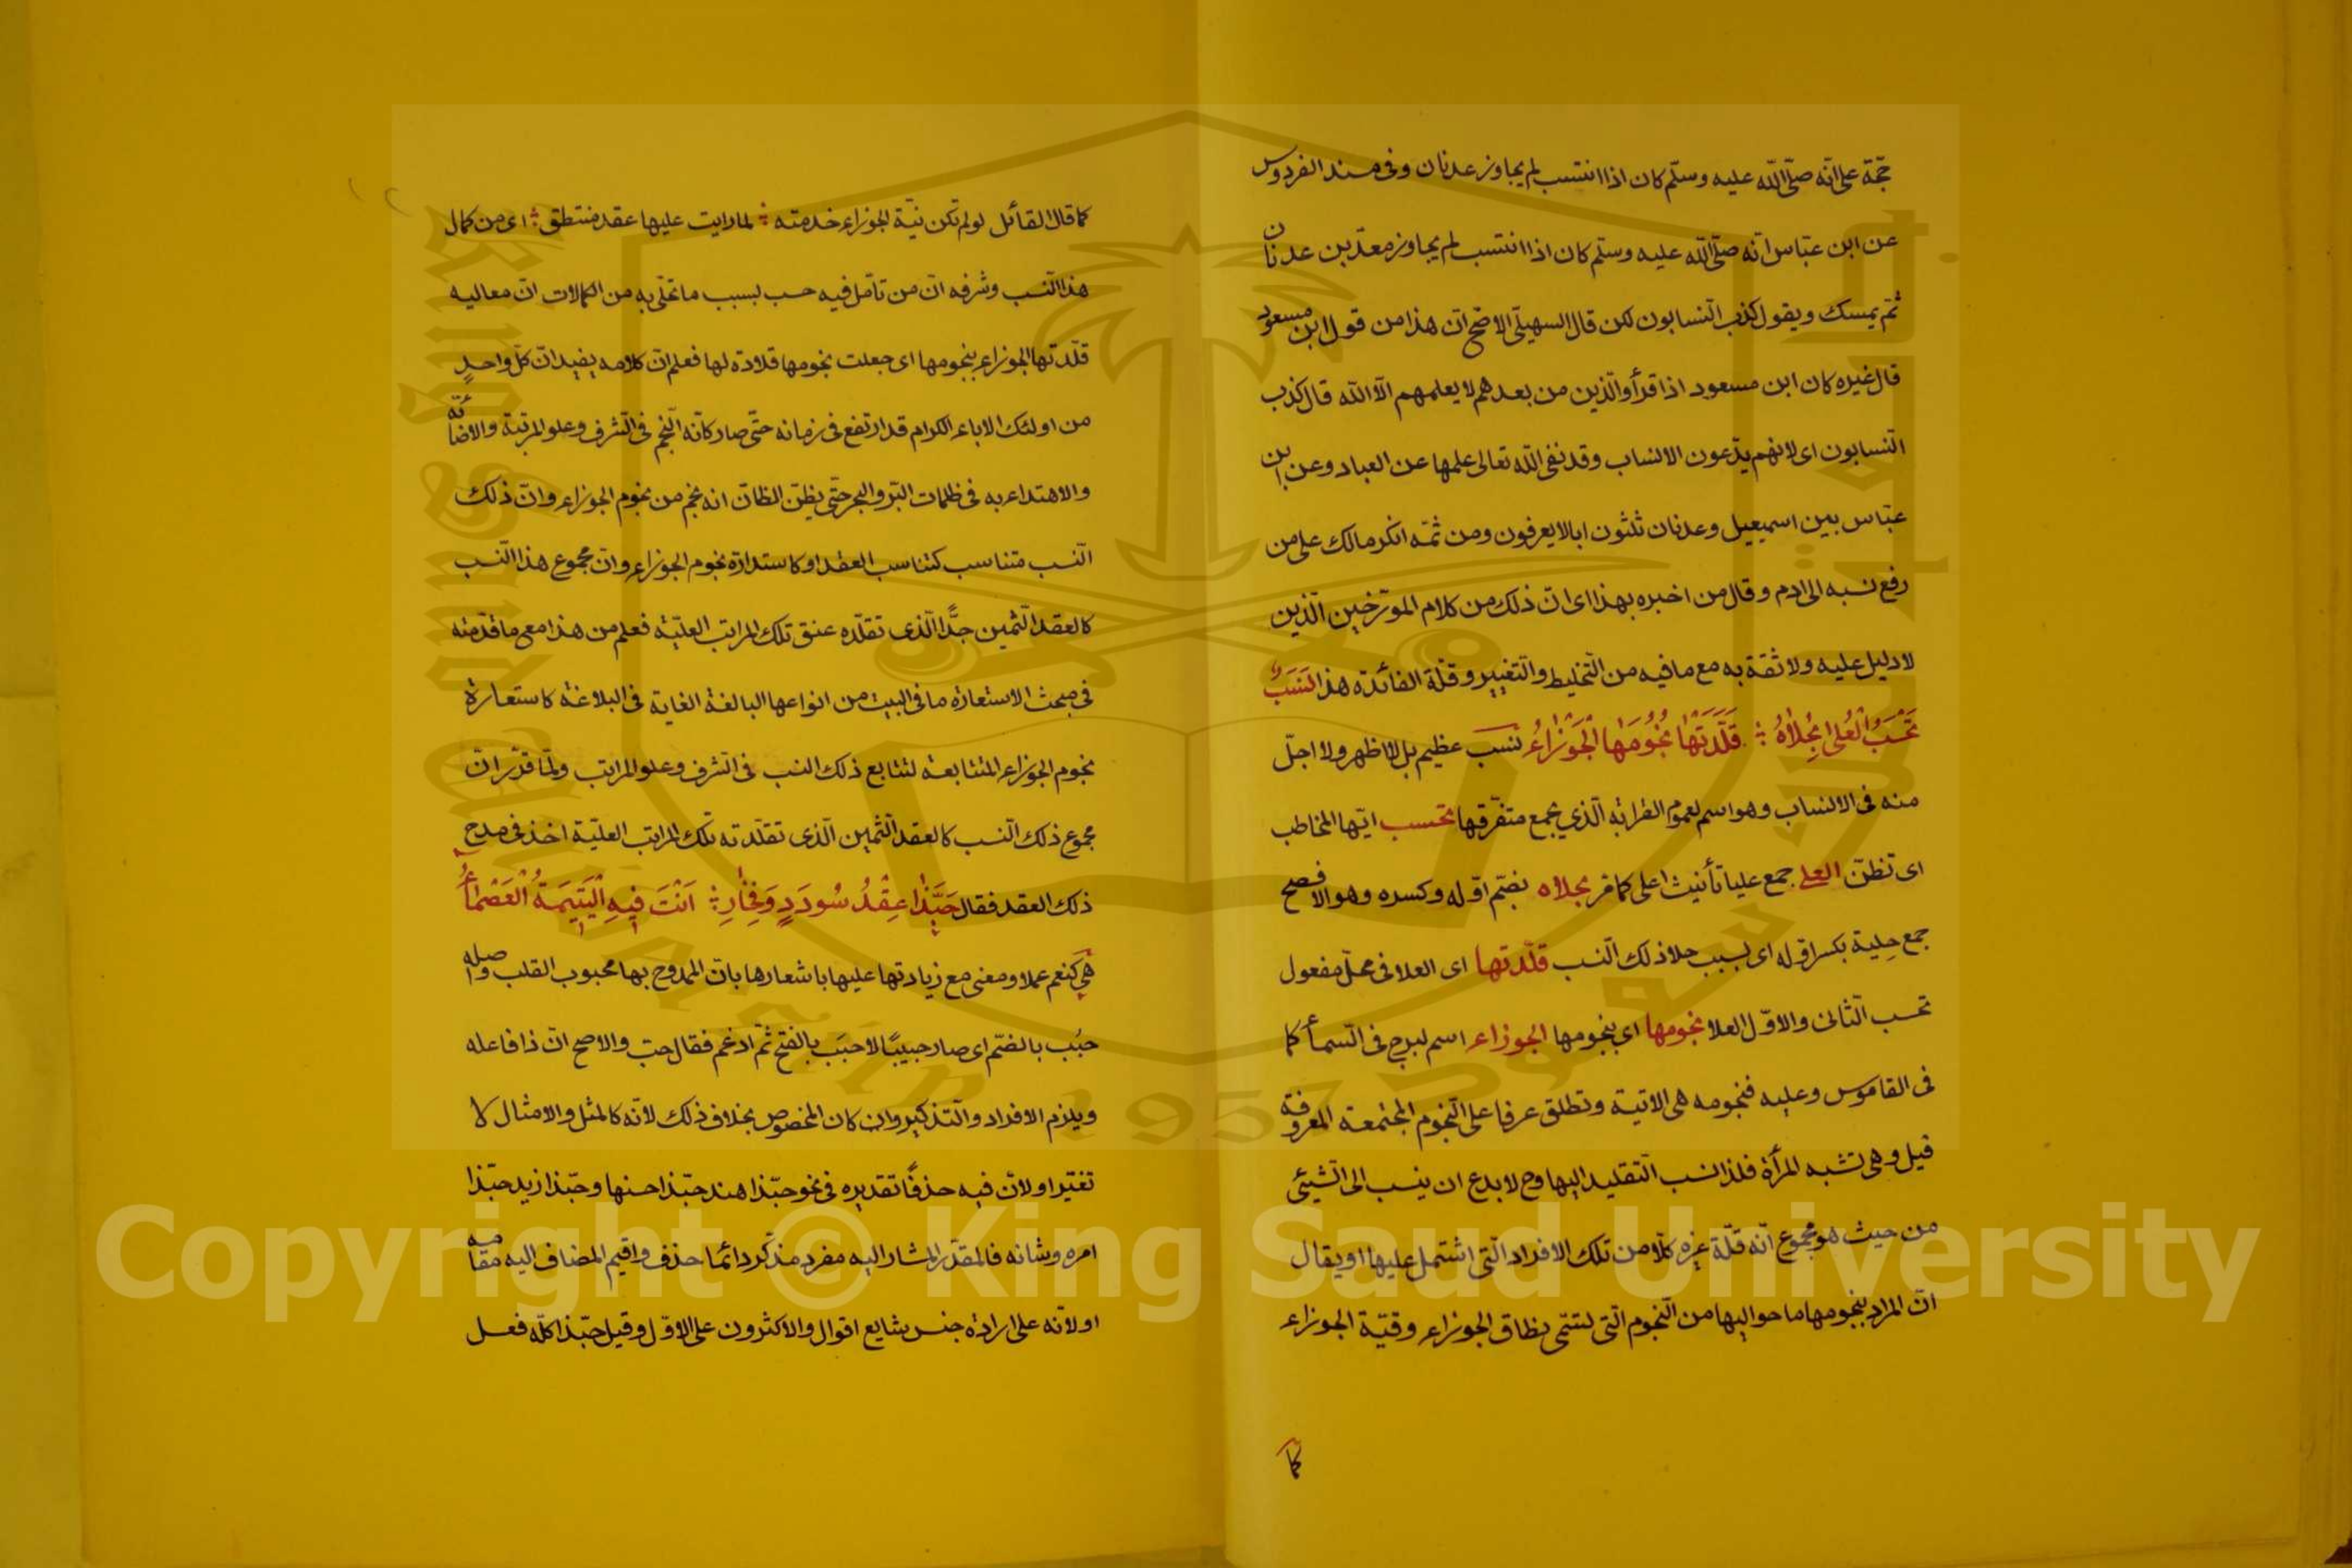 حجّة على انّه صلّى اللّه عليه وسلّم كان اذا انتسب لم يجاوز عدنان وفى مسند الفردوس
عن ابن عبّاس انّه صلّى اللّه عليه وسلّم كان اذا انتسب لم يجاوز معدّ بن عدنان
ثمّ يمسك ويقول كذب النّسابون لكن قال السهيلى الاصّح انّ هذا من قول ابن مسعود
قال غيره كان ابن مسعود اذا قرأ والّذين من بعدهم لا يعلمهم الّا اللّه قال كذب
النّسابون اى لانهم يدّعون الانساب وقد نفى اللّه تعالى علمها عن العباد وعن ابن
عبّاس بين اسمعيل وعدنان ثلثون ابا لا يعرفون ومن ثمّه انكر مالك على من
رفع نسبه الى ادم وقال من اخبره بهذا اى انّ ذلك من كلام المورّخين الّذين
لا دليل عليه ولا ثقة به مع ما فيه من التّخليط والتّغيير وقلّة الفائدة هذا نَسَبٌ
تَحْسَبُ الْعُلٰى بِحُلاٰهُ ؞ قَلَّدَتْهٰا نُجُومَهَا الْجَوْزٰاءُ نسب عظيم بل لا اظهر ولا اجلّ
منه فى الانساب وهو اسم لعموم القرابة الّذي يجمع متفرّقها تحسب ايّها المخاطب
اى تظنّ العلى جمع عليا تأنيث اعلى كما مر بحلاه بضمّ اوّله وكسره وهو الافصح
جمع حِلية بكسر اوّله اى بسبب حلا ذلك النّسب قلّدتها اى العلا فى محلّ مفعول
تحسب الثّانى والاوّل العلا نجومها اي بنجومها الجوزاء اسم لبرج فى السّمأ كما
فى القاموس وعليه فنجومه هى الاتية وتطلق عرفا على النّجوم المجتمعة المعروفة
قيل وهى تشبه المرأة فلذا نسب التّقليد اليها وح لا بدع ان ينسب الى الشّيئى
من حيث هو مجموع انّه قلّد غيره كلّا من تلك الافراد الّتى اشتمل عليها او يقال
انّ المراد بنجومها ما حواليها من النّجوم الّتى تسمّى نطاق الجوزاء وقيّة الجوزاء
كما
كما قال القائل لو لم تكن نيّة الجوزاء خدمته ؞ لما رايت عليها عقد منتطق ؞ اى من كمال
هذا النّسب وشرفه انّ من تأمل فيه حسب بسبب ما تحلّى به من الكمالات انّ معاليه
قلّدتها الجوزاء بنجومها اى جعلت نجومها قلادة لها فعلم انّ كلامه يفيد انّ كلّ واحدٍ
من اولئك الاباء الكرام قد ارتفع فى زمانه حتّى صار كانّه النّجم فى الشّرف وعلو المرتبة والاضائة
والاهتداء به فى ظلمات البرّ والبحر حتّى يظنّ الظانّ انه نجم من نجوم الجوزاء وانّ ذلك
النّسب متناسب كتناسب العقد او كاستدارة نجوم الجوزاء وانّ مجموع هذا النّسب
كالعقد الثّمين جدًّا الّذى تقلّده عنق تلك المراتب العليّة فعلم من هذا مع ما قدّمته
فى مبحث الاستعارة ما فى البيت من انواعها البالغة الغاية فى البلاغة كاستعارة
نجوم الجوزاء المتتابعة لتتابع ذلك النسب فى الشرف وعلو المراتب ولمّا قدّر انّ
مجموع ذلك النّسب كالعقد الثّمين الّذى تقلّدته تلك المراتب العليّة اخذ فى مدح
ذلك العقد فقال حَبَّذٰا عِقْدُ سُودَدٍ وَفِخٰارِ ؞ اَنْتَ فيهِ الْيَتِيمَةُ الْعَصْمٰاءُ
هى كنعم عملا ومعنى مع زيادتها عليها باشعارها بانّ الممدوح بها محبوب القلب واصله
حبُب بالضّم اى صار حبيبًا لا حبَب بالفتح ثمّ ادغم فقال حبّ والاصح انّ ذا فاعله
ويلزم الافراد والتّذكير وان كان المخصوص بخلاف ذلك لانّه كالمثل والامثال لا
تغيّر او لانّ فيه حذفًا تقديره فى نحو حبّذا هند حبّذا حسنها وحبّذا زيد حبّذا
امره وشانه فالمقدّر المشار اليه مفرد مذكّر دائما حذف واقيم المضاف اليه مقامه
او لانّه على ارادة جنس شايع اقوال والاكثرون على الاوّل وقيل حبّذا كلّه فعل
Copyright © King Saud University
King Saud University
جامعة الملك سعود
1957